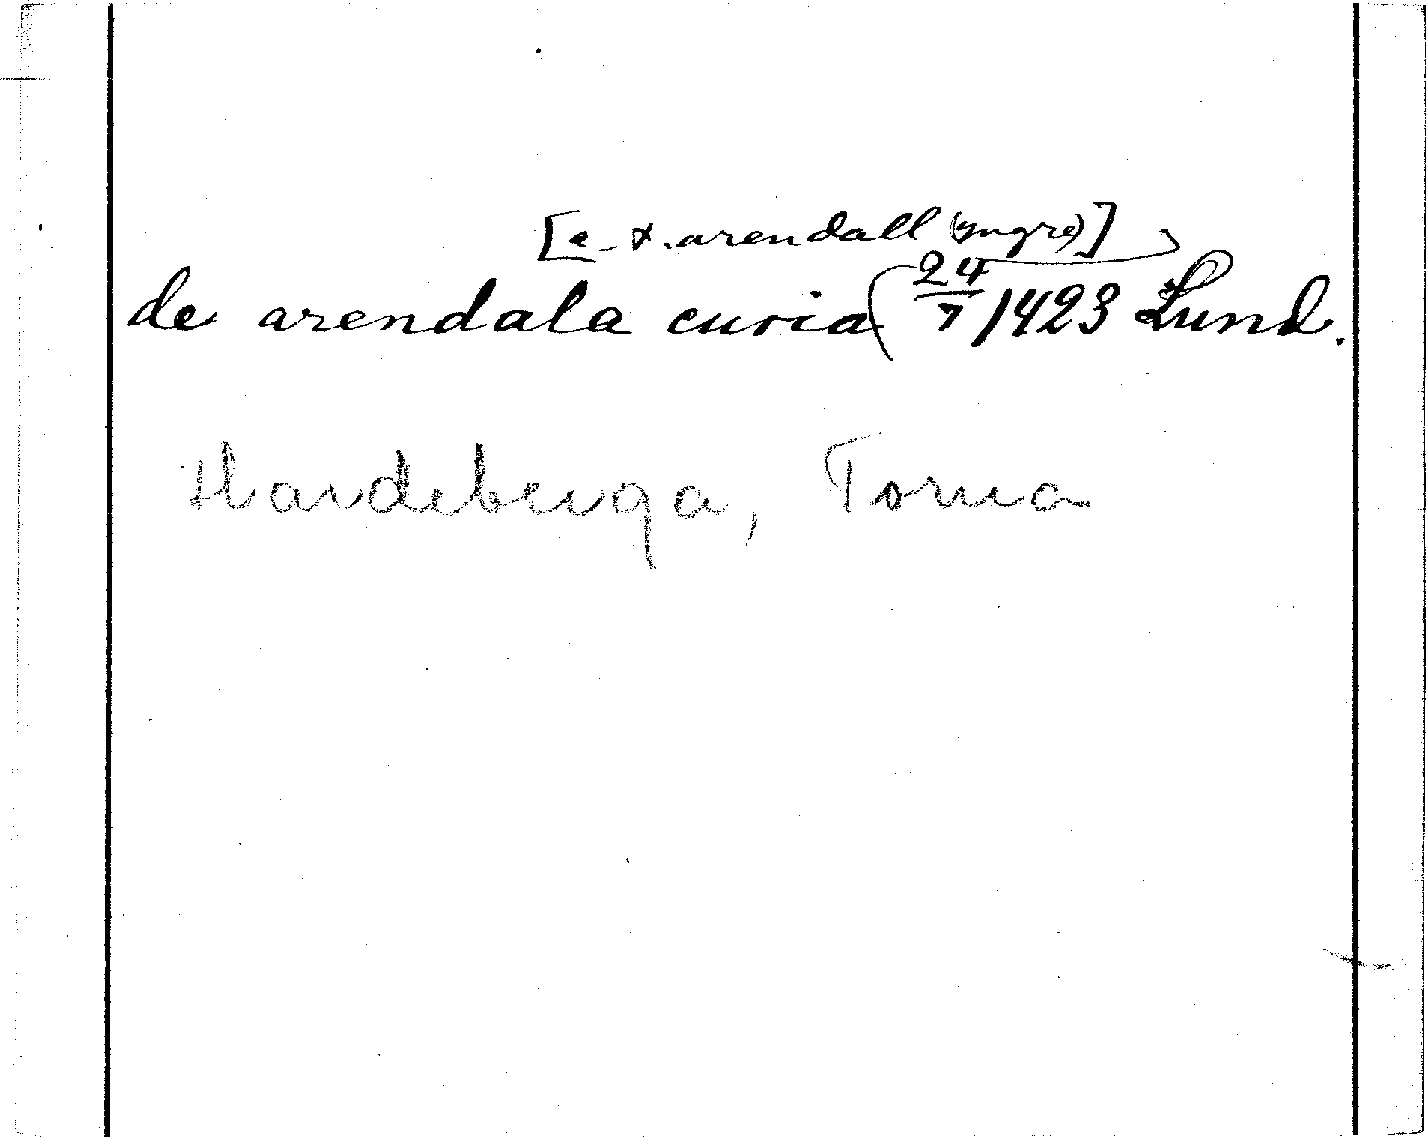 [a. t. arendall (yngre)]
de arendala curia 24/7 1423 Lund.
Hardeberga, Torna